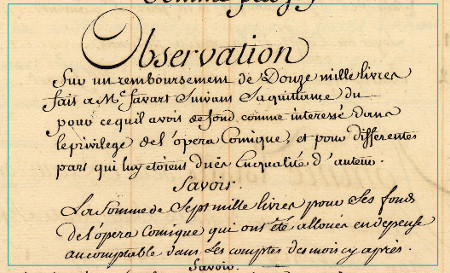 Observation
Sur un remboursement de Douze mille livres
fait a Mr. favart Suivant Saquittance du
pour cequil avoit de fond comme interessé dans
leprivilege del'opera Comique, et pour differentes
part qui luy etoient duës Enqualité d'auteur.
Savoir.
La Somme de Sept mille livres pour Ses fonds
del'opera Comique qui ont été alloués endepense
aucomptable dans les comptes des mois cy après.
Savoir